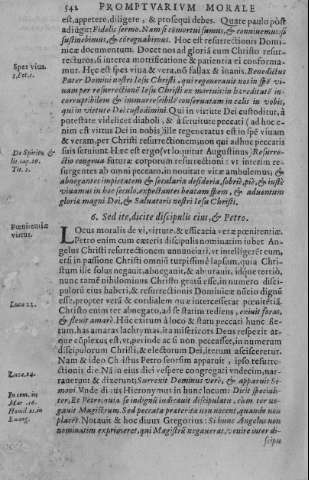 542 PROMPTVARIVM MORALE
est, appetere, diligere, & prosequi debes. Quare paulò pòst
adiûgit: Fidelis sermo. Nam si cōmortui sumus, & conuiuemus: si
sustinebimus, & cōregnabimus. Hoc est resurrectionis Domi-
nicæ documentum. Docet nos ad gloriā cum Christo resur-
recturos, si interea mortificatione & patientia ei conforma-
Spes viua.
1.Pet.1.
mur. Hæc est spes viua & vera, nō fallax & inanis. Benedictus
Pater Domini nostri Iesu Christi, qui regenerauit nos in spē vi-
uam per resurrectionē Iesu Christi ex mortuis in hæreditatē in-
corruptibilem & immarcessibilē conseruatam in cælis in vobis,
qui in virtute Dei custodimini. Qui in virtute Dei custoditur, à
potestate videlicet diaboli, & à seruitute peccati (ad hoc e-
nim est virtus Dei in nobis) ille regeneratus est in spē viuam
& veram, per Christi resurrectionem; non qui adhuc peccati
iugū
De Spiritu &
lit. cap.10.
To. 3.
seruiunt. Hæc est ergo (vt loquitur Augustinus) Resurre-
ctio congrua futuræ corporum resurrectioni: vt interim re-
surgentes ab omni peccato, in nouitate vitæ ambulemus; &
abnegantes impietatem & secularia desideria, sobriè, piè, & iustè
viuamus in hoc seculo, expectantes beatam spem, & aduentum
gloriæ magni Dei, & Saluatoris nostri Iesu Christi.
6. Sed ite, dicite discipulis eius, & Petro.
Pœnitentiæ
virtus.
LOcus moralis de vi, virtute, & efficacia veræ pœnitentiæ.
Petro enim cum cæteris discipulis nominatim iubet An-
gelus Christi resurrectionem annunciari, vt intelligeret cum,
etsi in passione Christi omniū turpissimè lapsum, quia Chri-
stum ille solus negauit, abnegauit, & abiurauit, idque tertiò,
nunc tamē nihilominus Christo gratū esse, in numero disci-
pulorū eius haberi, & resurrectionis Dominicæ nūcio dignū
esse, propter verā & cordialem quæ intercesserat pœnitētiā.
Luc. 22.
Christo enim ter abnegato, ad se statim rediens, exiuit foras,
& fleuit amarè. Huc exitum à loco & statu peccati hunc fle-
tum, has amaras lachrymas, ita misericors Deus respexit at-
que cōplexus est, vt perinde ac si non peccasset, in numerum
discipulorum Christi, & electorum Dei, iterum ascisceretur.
Nam & ideo Christus Petro seorsim apparuit, ipso resurre-
Luc. 24.
ctionis die. Nā in eius diei vespere congregati vndecim, nar-
rauerunt & dixerunt; Surrexit Dominus verè, & apparuit Si-
moni. Vnde diuus Hieronymus in hunc locum: Dicit speciali-
In cōm. in
Mar. 16.
ter, Et Petro; quia se indignū iudicauit discipulatu, cum ter ne-
gauit Magistrum. Sed peccata præterita non nocent, quando non
Homil. 21. in
Euang.
placent. Notauit & hoc diuus Gregorius: Si hunc Angelus non
nominatim exprimeret, qui Magistrū negauerat, venire inter di-
scipu